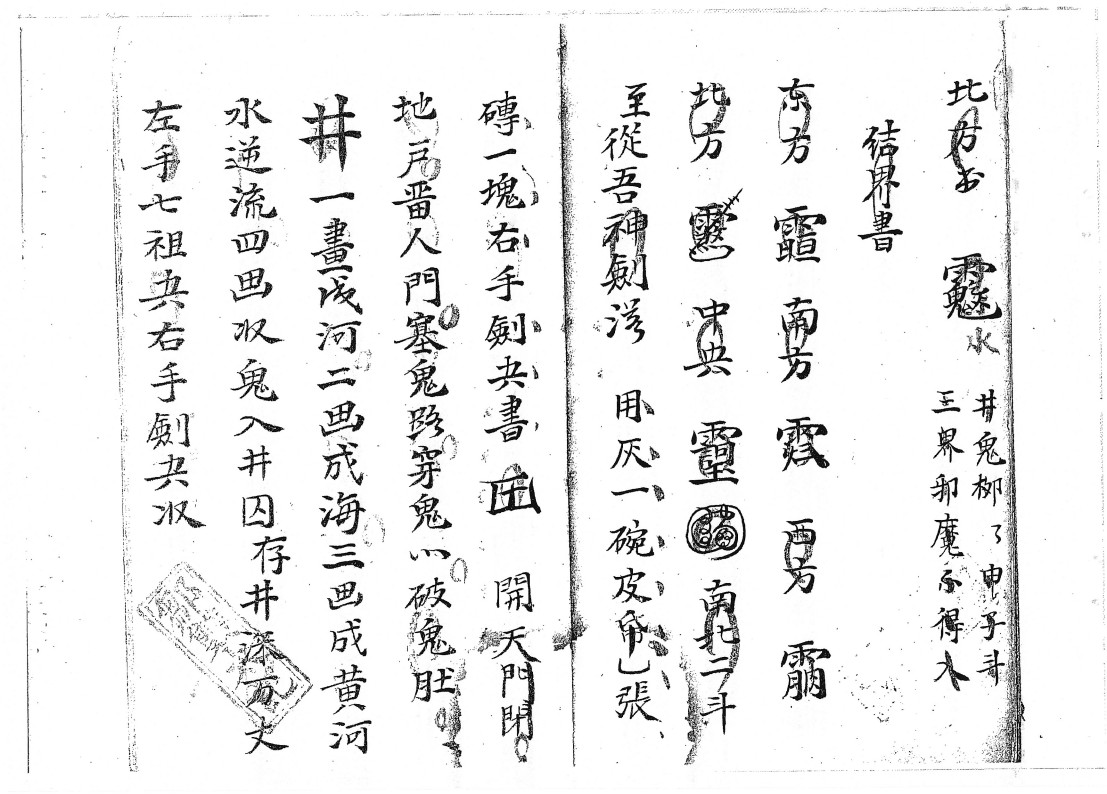 北方书 水 井鬼柳了申子斗
三界邪魔不得入
結界書
东方 南方 西方
北方 中央 南北二斗
至從吾神劍 用灰一碗皮帋乙張
磚一塊右手劍央書 開天門閉
地戸畨人門塞鬼路穿鬼心破鬼肚
井一畫成河二画成海三画成黄河
水逆流四画収鬼入井囚存井深万丈
左手七祖央右手劍央収